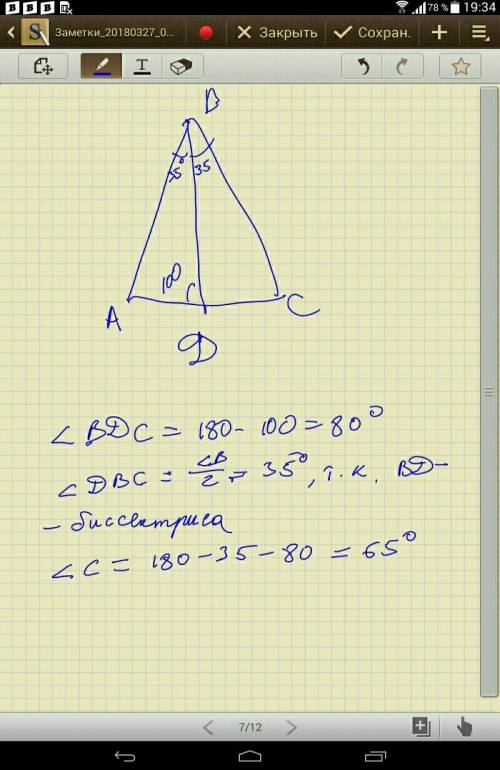 78 % 19:34
Заметки_20180327_0... Закрыть Сохран.
B
35° 35
100
A C
D
∠BDC = 180 - 100 = 80°
∠DBC = ∠B/2 = 35°, т.к. BD -
- биссектриса
∠C = 180 - 35 - 80 = 65°
7/12